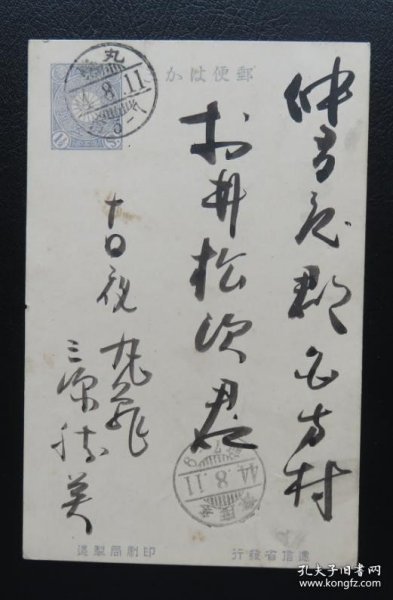 郵便はか
仲多度郡白方村
村井松次君
十日夜 丸亀
三原勝美
丸
8.11
1½ Sn
44.8.11
遞信省發行
印刷局製造
孔夫子旧书网
www.kongfz.com